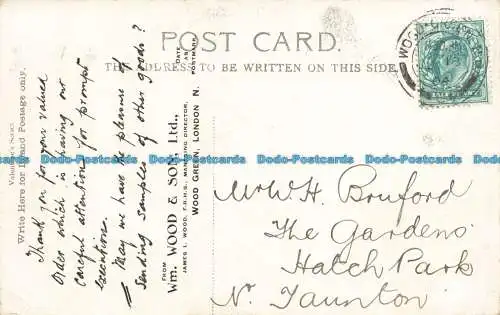 POST CARD.
THE ADDRESS TO BE WRITTEN ON THIS SIDE.
Valentine's Series
Write Here for Inland Postage only.
Thank you for your valued
order which is having our
careful attention for prompt
execution.
May we have the pleasure of
sending samples of other goods?
FROM
Wm. WOOD & SON, Ltd.,
JAMES I. WOOD, F.R.H.S., MANAGING DIRECTOR,
WOOD GREEN, LONDON N.
DATE
AS
POSTMARK
Mr W. H. Bruford
The Gardens
Hatch Park
Nr. Taunton
Dodo-Postcards Dodo-Postcards Dodo-Postcards Dodo-Postcards Dodo-Postcards